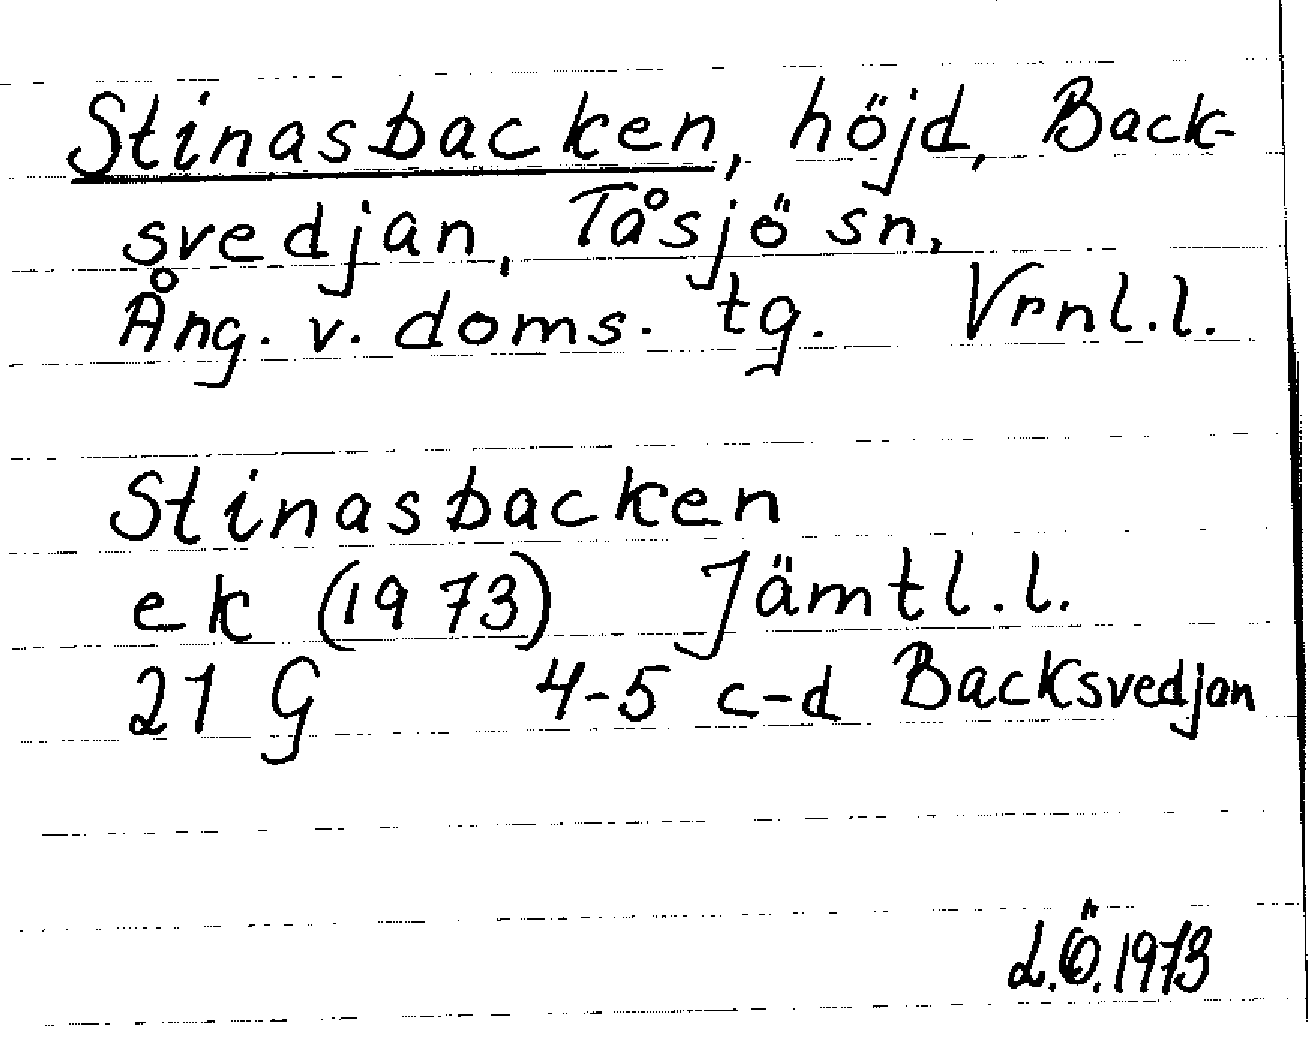 Stinasbacken, höjd, Back-
svedjan, Tåsjö sn,
Ång. v. doms. tg. Vrnl.l.
Stinasbacken
ek (1973) Jämtl.l.
21 G 4-5 c-d Backsvedjan
L.Ö.1973